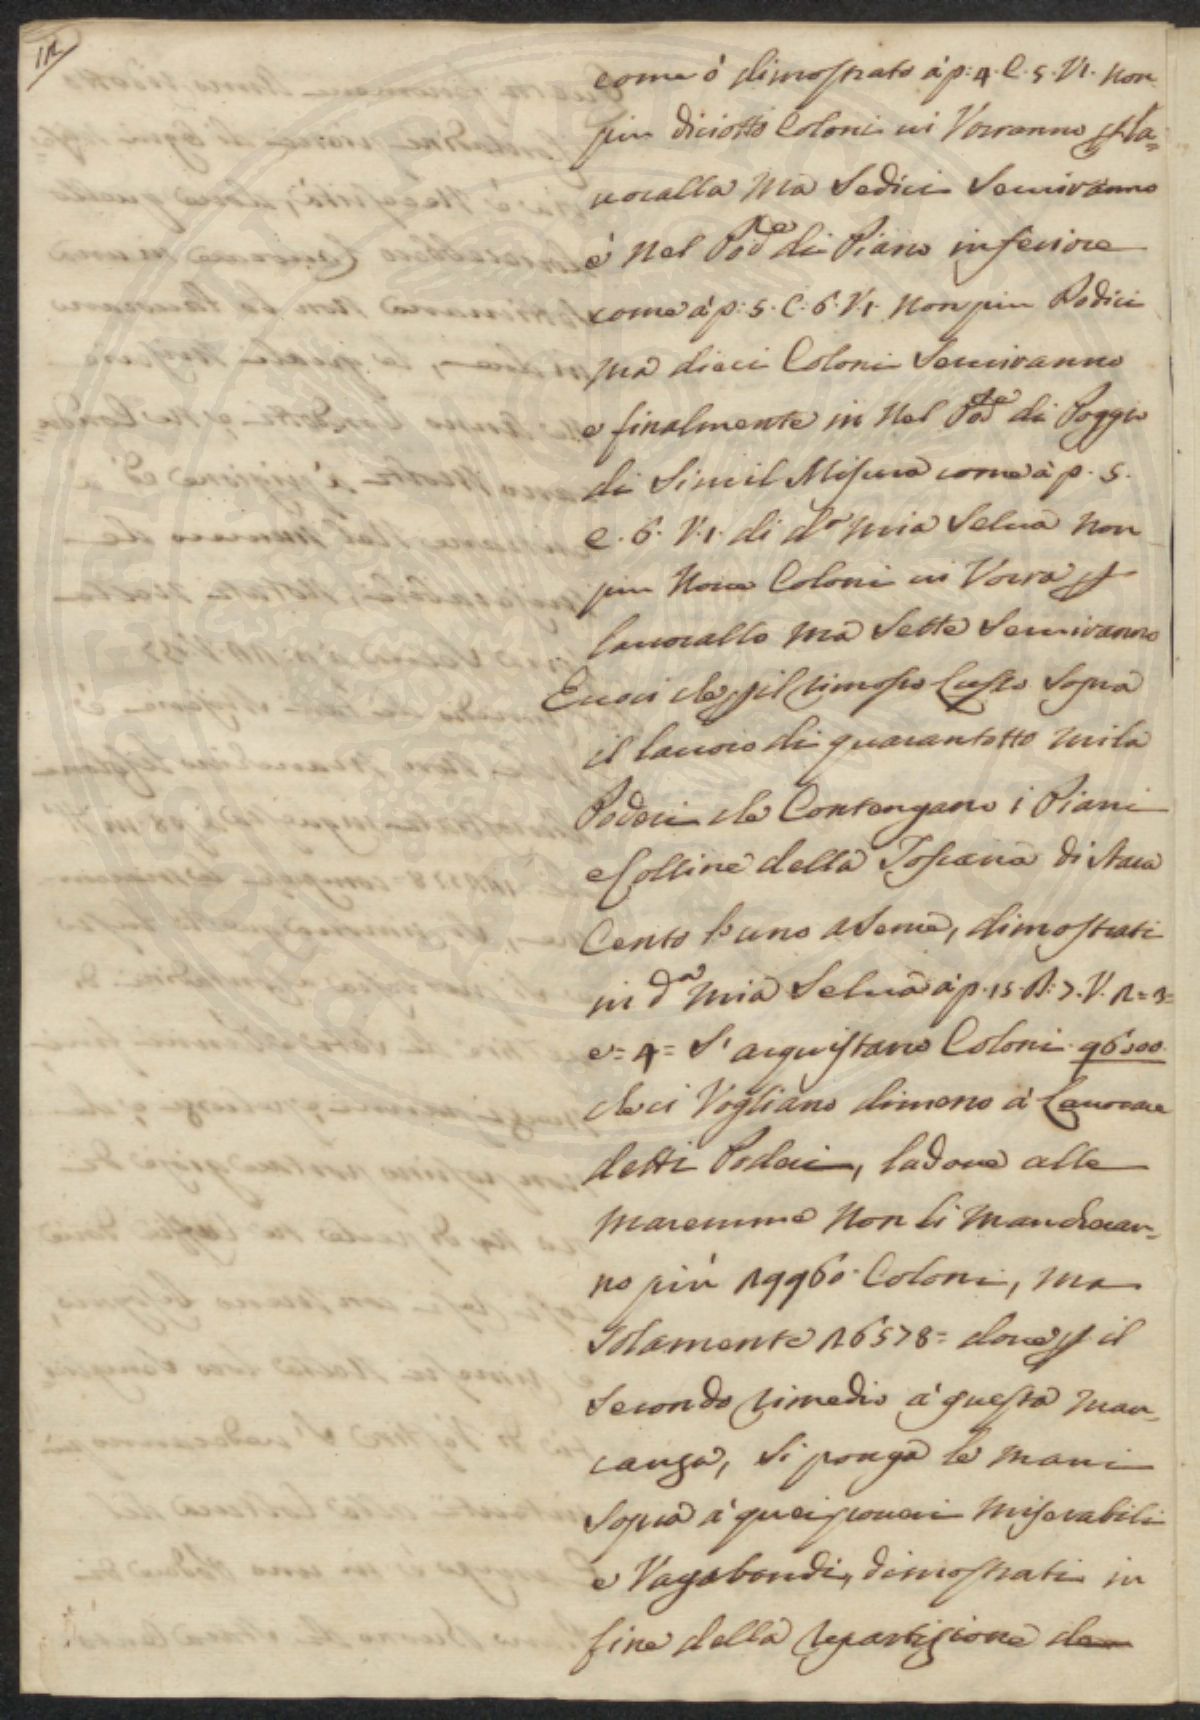 12
come è dimostrato à p: 4. C. 5. V1. non
piu diciotto Coloni vi Vorranno p la=
uoralla ma Sedici Seruiranno
è nel Pod.re di Piano inferiore
come à p: 5. C. 6. V.1. non piu Dodici
ma dieci Coloni Seruiranno
e finalmente in nel Pod.re di Poggio
di Simil Misura come à p. 5.
C. 6. V.1. di d.a mia Selua non
piu noue Coloni vi Vorrà p
lauorallo ma Sette Seruiranno
Eccoci che p il rimosso Lusso Sopra
il lauoro di quarantotto mila
Poderi che Contengano i Piani
e Colline della Toscana di Staia
Cento l'uno a Seme, dimostrati
in d.a mia Selua à p. 15. B: 7. V. 2=3=
e=4= S'acquistano Coloni 96000
che ci Vogliano dimeno à Lauorare
detti Poderi, ladoue alle
maremme non li mancheran=
no più 19960. Coloni, ma
Solamente 16578= doue p il
Secondo rimedio à questa man=
canza, Si ponga le mani
Sopra à quei poueri miserabili
e Vagabondi, dimostrati in
fine della repartizione de